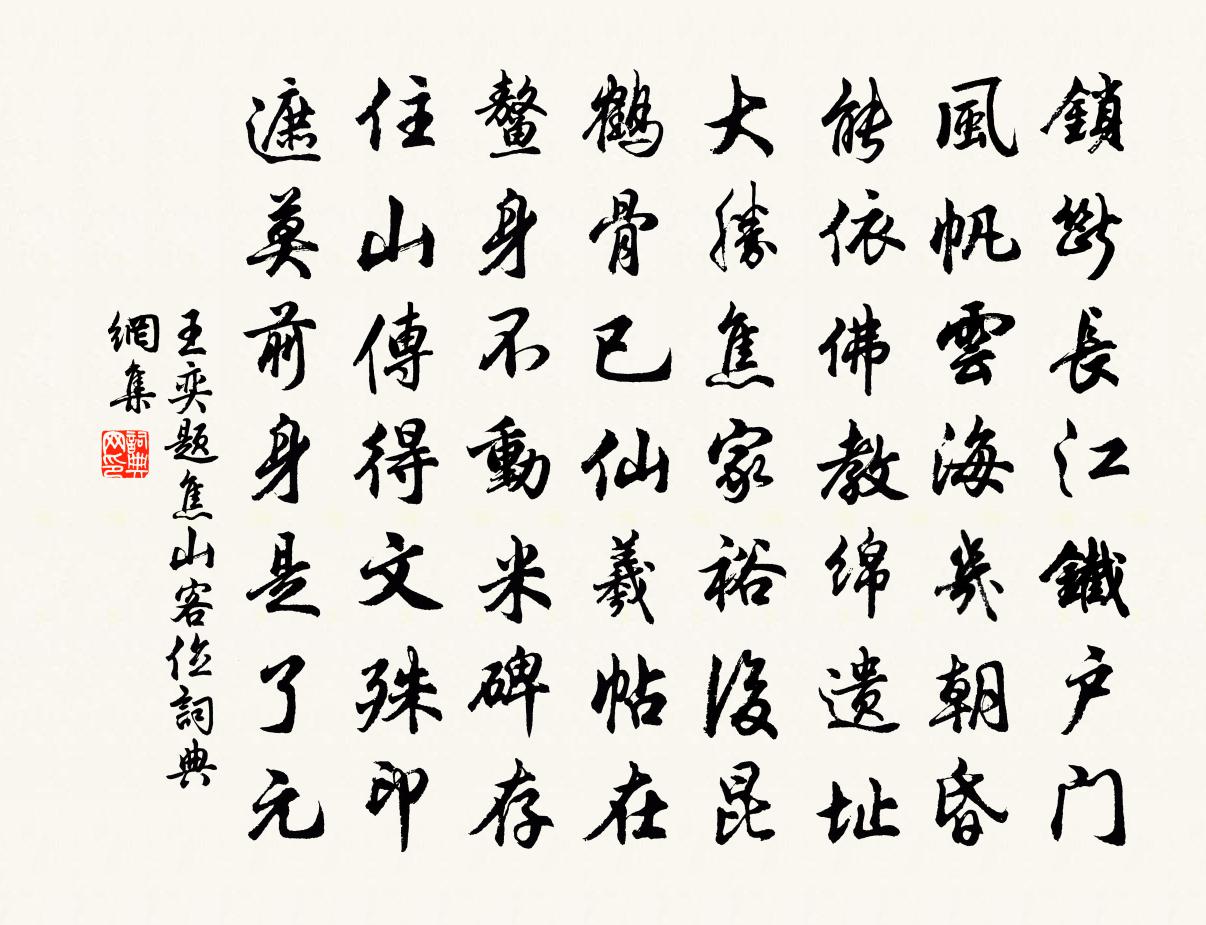 鎖斷長江鐵户门
風帆雲海幾朝昏
能依佛教绵遗址
大勝焦家裕後昆
鶴骨已仙羲帖在
鰲身不動米碑存
住山傳得文殊印
遮莫前身是了元
王奕题焦山客位詞典
網集
詞典
网印